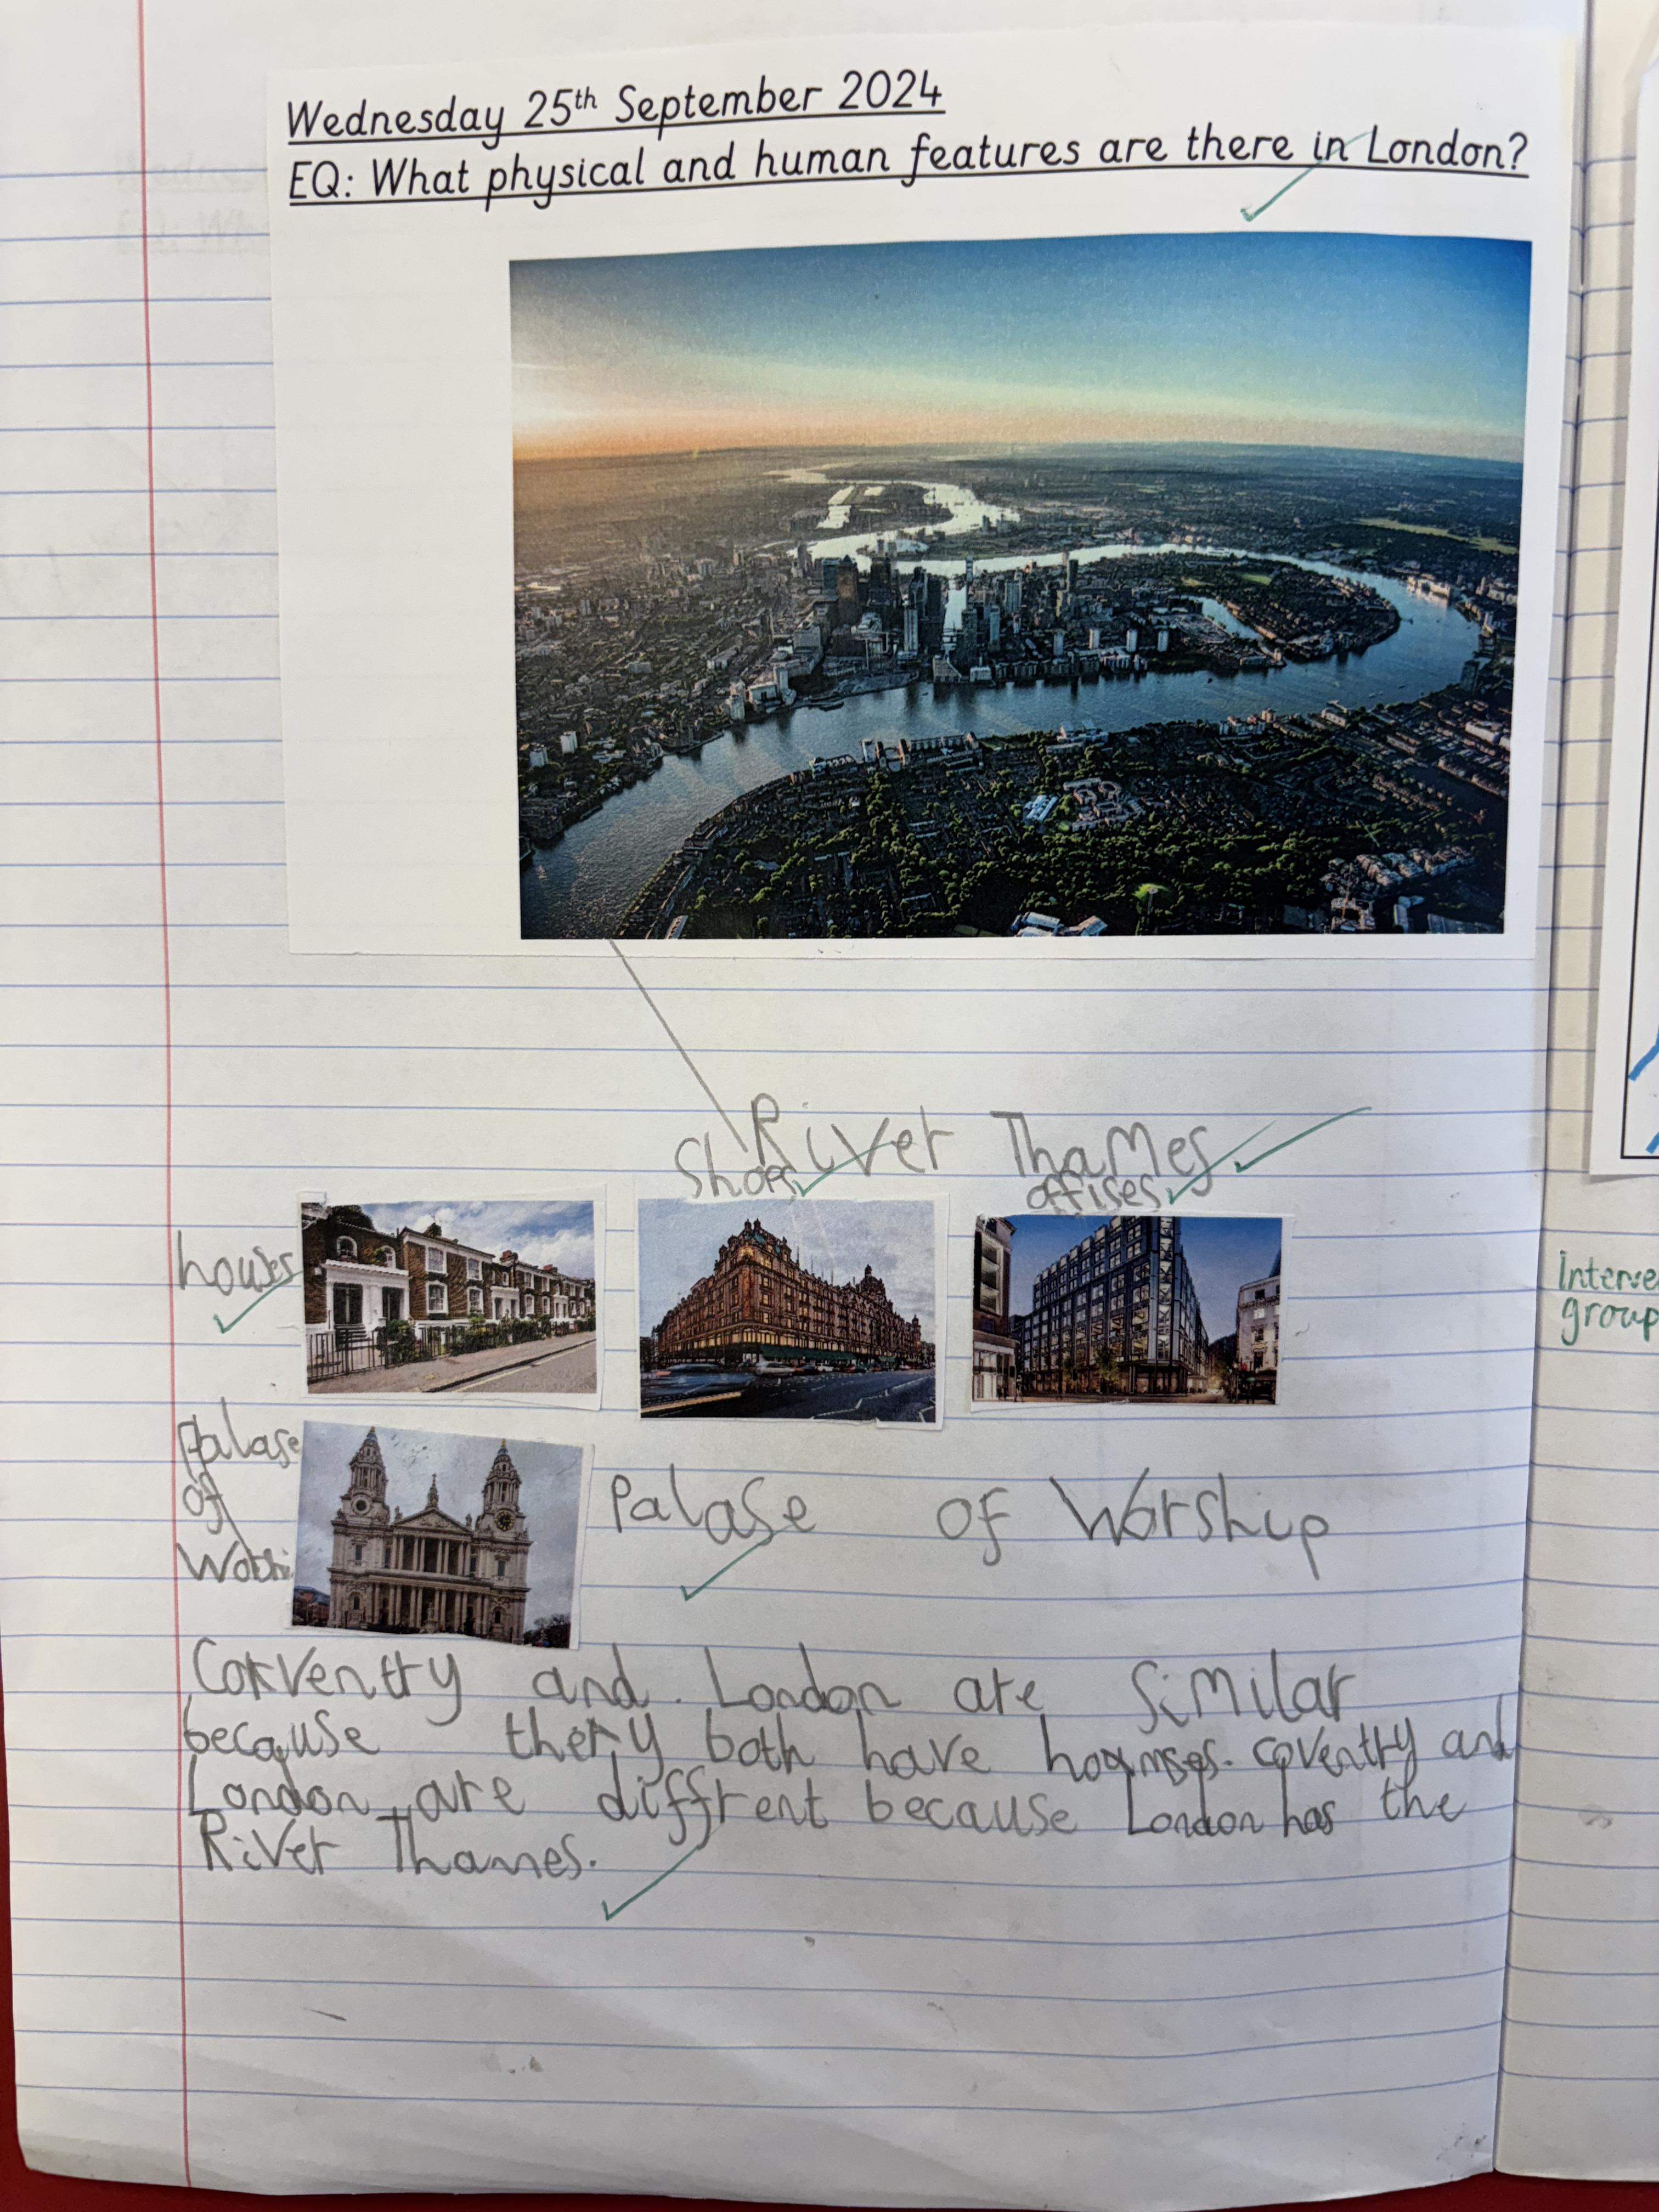 Wednesday 25th September 2024
EQ: What physical and human features are there in London?
River Thames
Shops
offises
houses
Palase
of
Palase of Worship
Corventry and London are similar
because they both have houses. Coventry and
London are diffrent because London has the
River Thames.
Interve
group